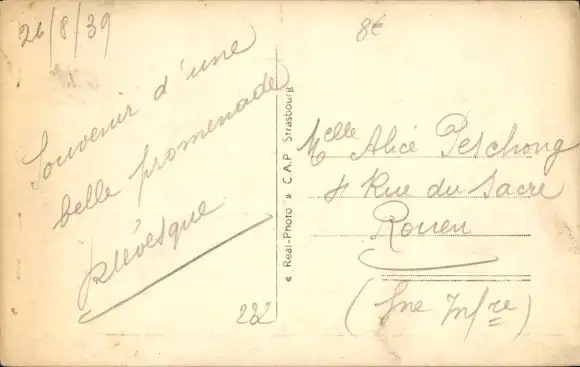 26/8/39
8€
Souvenir d'une
belle promenade
« Real-Photo » C.A.P Strasbourg
Melle Alice Peschong
4 Rue du Sacre
Rouen
(Sne Infre)
232